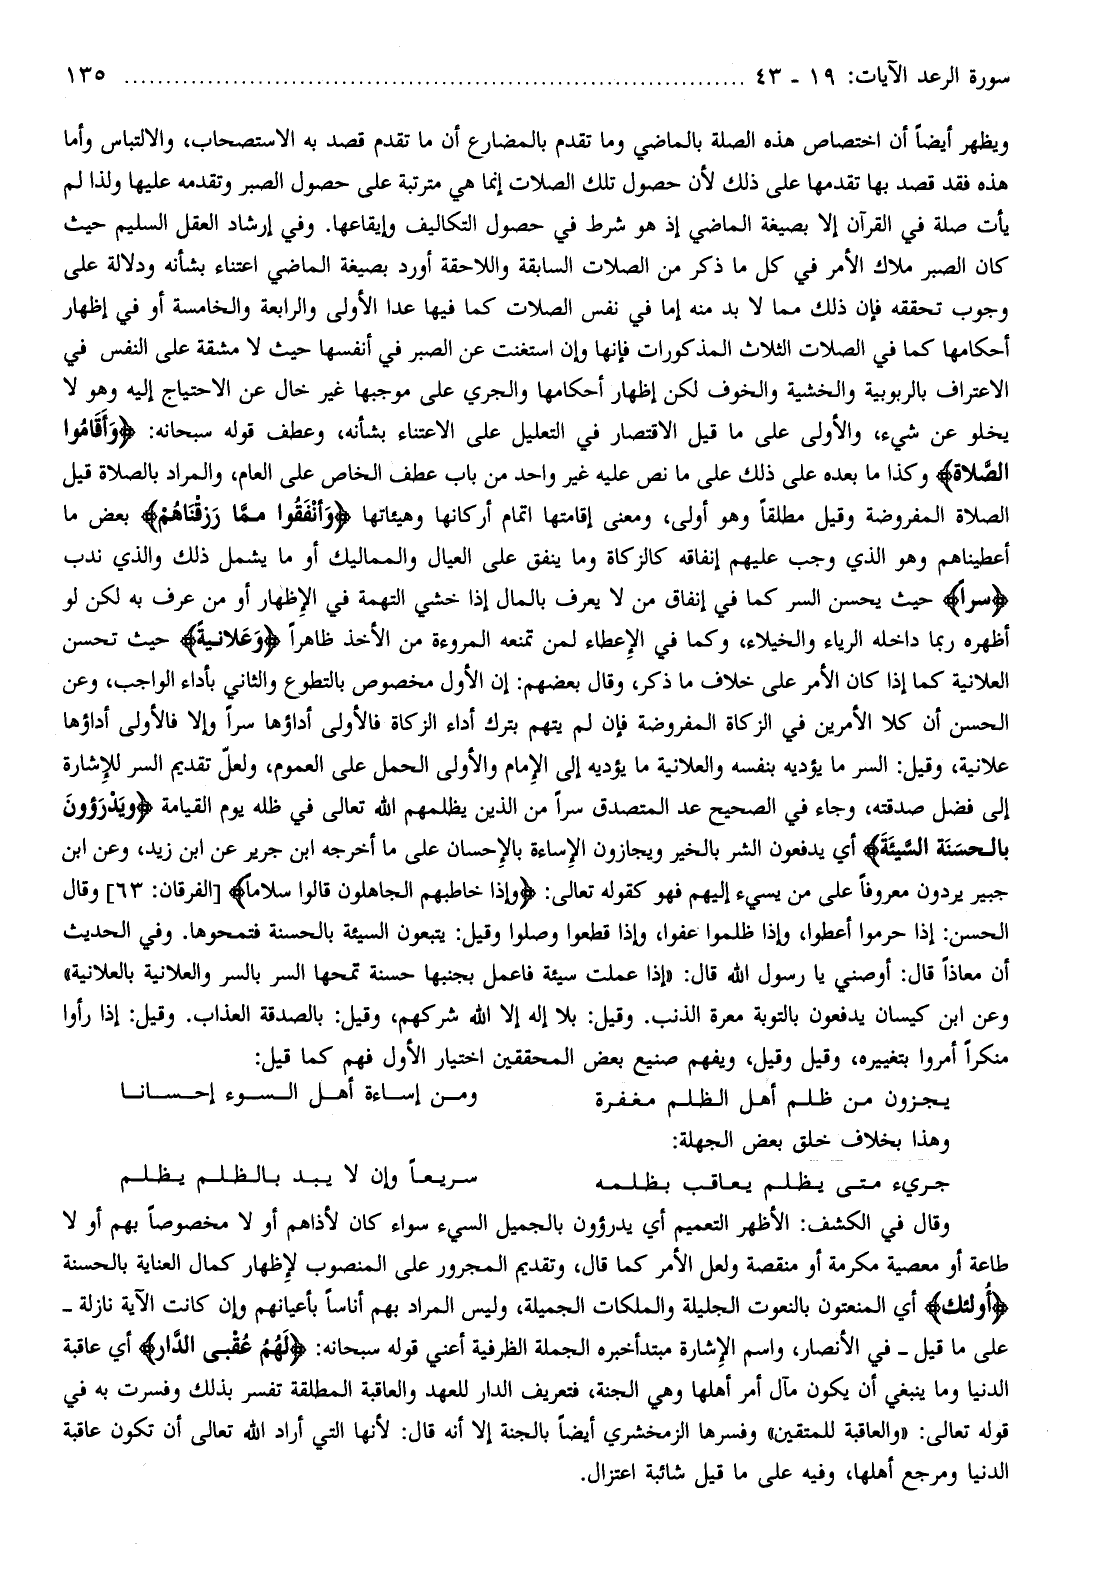 سورة الرعد الآيات: ١٩ - ٤٣ ........................................ ١٣٥
ويظهر أيضاً أن اختصاص هذه الصلة بالماضي وما تقدم بالمضارع أن ما تقدم قصد به الاستصحاب، والالتباس وأما
هذه فقد قصد بها تقدمها على ذلك لأن حصول تلك الصلات إنما هي مترتبة على حصول الصبر وتقدمه عليها ولذا لم
يأت صلة في القرآن إلا بصيغة الماضي إذ هو شرط في حصول التكاليف وإيقاعها. وفي إرشاد العقل السليم حيث
كان الصبر ملاك الأمر في كل ما ذكر من الصلات السابقة واللاحقة أورد بصيغة الماضي اعتناء بشأنه ودلالة على
وجوب تحققه فإن ذلك مما لا بد منه إما في نفس الصلات كما فيها عدا الأولى والرابعة والخامسة أو في إظهار
أحكامها كما في الصلات الثلاث المذكورات فإنها وإن استغنت عن الصبر في أنفسها حيث لا مشقة على النفس في
الاعتراف بالربوبية والخشية والخوف لكن إظهار أحكامها والجري على موجبها غير خال عن الاحتياج إليه وهو لا
يخلو عن شيء، والأولى على ما قيل الاقتصار في التعليل على الاعتناء بشأنه، وعطف قوله سبحانه: ﴿وَأَقَامُوا
الصَّلاة﴾ وكذا ما بعده على ذلك على ما نص عليه غير واحد من باب عطف الخاص على العام، والمراد بالصلاة قيل
الصلاة المفروضة وقيل مطلقاً وهو أولى، ومعنى إقامتها اتمام أركانها وهيئاتها ﴿وَأَنْفَقُوا ممَّا رَزَقْنَاهُمْ﴾ بعض ما
أعطيناهم وهو الذي وجب عليهم إنفاقه كالزكاة وما ينفق على العيال والمماليك أو ما يشمل ذلك والذي ندب
﴿سراً﴾ حيث يحسن السر كما في إنفاق من لا يعرف بالمال إذا خشي التهمة في الإظهار أو من عرف به لكن لو
أظهره ربما داخله الرياء والخيلاء، وكما في الإعطاء لمن تمنعه المروءة من الأخذ ظاهراً ﴿وَعَلانيةً﴾ حيث تحسن
العلانية كما إذا كان الأمر على خلاف ما ذكر، وقال بعضهم: إن الأول مخصوص بالتطوع والثاني بأداء الواجب، وعن
الحسن أن كلا الأمرين في الزكاة المفروضة فإن لم يتهم بترك أداء الزكاة فالأولى أداؤها سراً وإلا فالأولى أداؤها
علانية، وقيل: السر ما يؤديه بنفسه والعلانية ما يؤديه إلى الإمام والأولى الحمل على العموم، ولعلّ تقديم السر للإشارة
إلى فضل صدقته، وجاء في الصحيح عد المتصدق سراً من الذين يظلمهم الله تعالى في ظله يوم القيامة ﴿ويَدْرَؤونَ
بالحسَنَة السَّيئَةَ﴾ أي يدفعون الشر بالخير ويجازون الإساءة بالإحسان على ما أخرجه ابن جرير عن ابن زيد، وعن ابن
جبير يردون معروفاً على من يسيء إليهم فهو كقوله تعالى: ﴿وإذا خاطبهم الجاهلون قالوا سلاماً﴾ [الفرقان: ٦٣] وقال
الحسن: إذا حرموا أعطوا، وإذا ظلموا عفوا، وإذا قطعوا وصلوا وقيل: يتبعون السيئة بالحسنة فتمحوها. وفي الحديث
أن معاذاً قال: أوصني يا رسول الله قال: «إذا عملت سيئة فاعمل بجنبها حسنة تمحها السر بالسر والعلانية بالعلانية»
وعن ابن كيسان يدفعون بالتوبة معرة الذنب. وقيل: بلا إله إلا الله شركهم، وقيل: بالصدقة العذاب. وقيل: إذا رأوا
منكراً أمروا بتغييره، وقيل وقيل، ويفهم صنيع بعض المحققين اختيار الأول فهم كما قيل:
يجزون من ظلم أهل الظلم مغفرة ومن إساءة أهل السوء إحسانا
وهذا بخلاف خلق بعض الجهلة:
جريء متى يظلم يعاقب بظلمه سريعاً وإن لا يبد بالظلم يظلم
وقال في الكشف: الأظهر التعميم أي يدرؤون بالجميل السيء سواء كان لأذاهم أو لا مخصوصاً بهم أو لا
طاعة أو معصية مكرمة أو منقصة ولعل الأمر كما قال، وتقديم المجرور على المنصوب لإظهار كمال العناية بالحسنة
﴿أُولئك﴾ أي المنعتون بالنعوت الجليلة والملكات الجميلة، وليس المراد بهم أناساً بأعيانهم وإن كانت الآية نازلة -
على ما قيل - في الأنصار، واسم الإشارة مبتدأخبره الجملة الظرفية أعني قوله سبحانه: ﴿لَهُمْ عُقْبى الدَّار﴾ أي عاقبة
الدنيا وما ينبغي أن يكون مآل أمر أهلها وهي الجنة، فتعريف الدار للعهد والعاقبة المطلقة تفسر بذلك وفسرت به في
قوله تعالى: «والعاقبة للمتقين» وفسرها الزمخشري أيضاً بالجنة إلا أنه قال: لأنها التي أراد الله تعالى أن تكون عاقبة
الدنيا ومرجع أهلها، وفيه على ما قيل شائبة اعتزال.